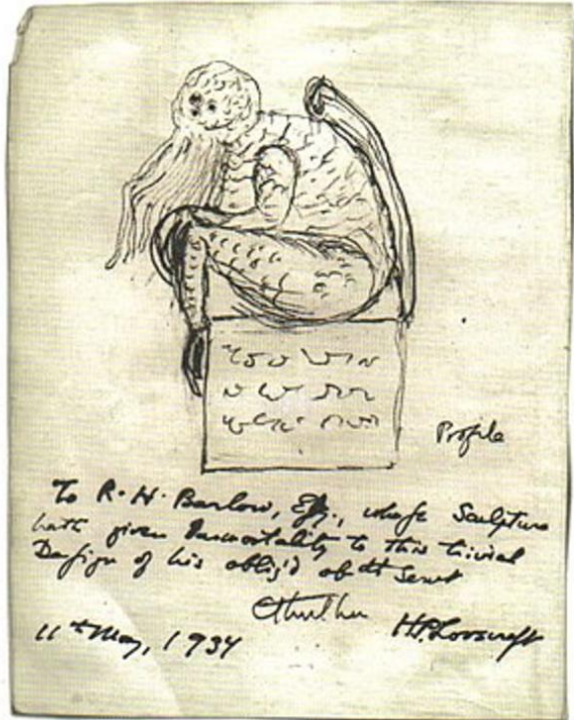 Profile
To R. H. Barlow, Esq., whose Sculpture
hath given Immortality to this trivial
Design of his oblig'd obdt Servt
Cthulhu
H.P.Lovecraft
11th May, 1934